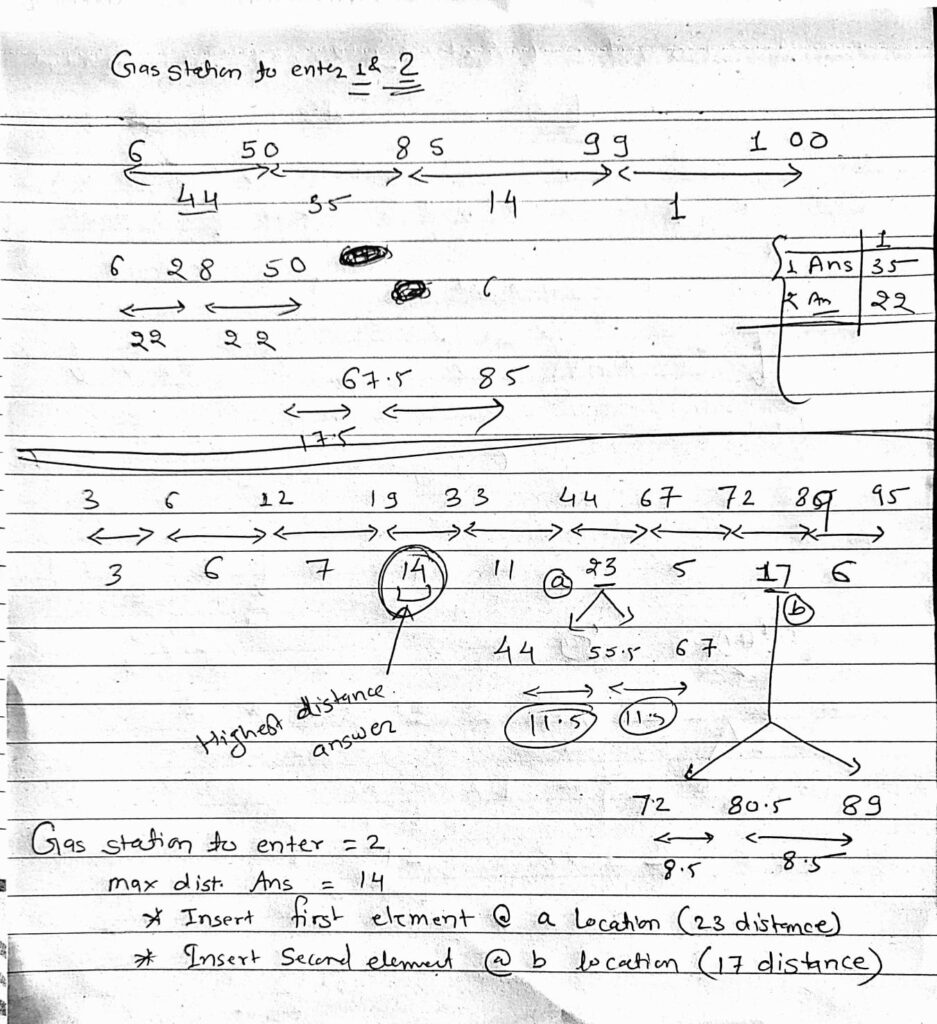 Gas station to enter 1 & 2
6 50 85 99 100
44 35 14 1
1
1 Ans 35
2 An 22
6 28 50
6
22 22
67.5 85
17.5
3 6 12 19 33 44 67 72 89 95
3 6 7 14 11 a 23 5 17 6
b
44 55.5 67
11.5 11.5
Highest distance
answer
72 80.5 89
8.5 8.5
Gas station to enter = 2
max dist. Ans = 14
* Insert first element @ a location (23 distance)
* Insert Second element @ b location (17 distance)